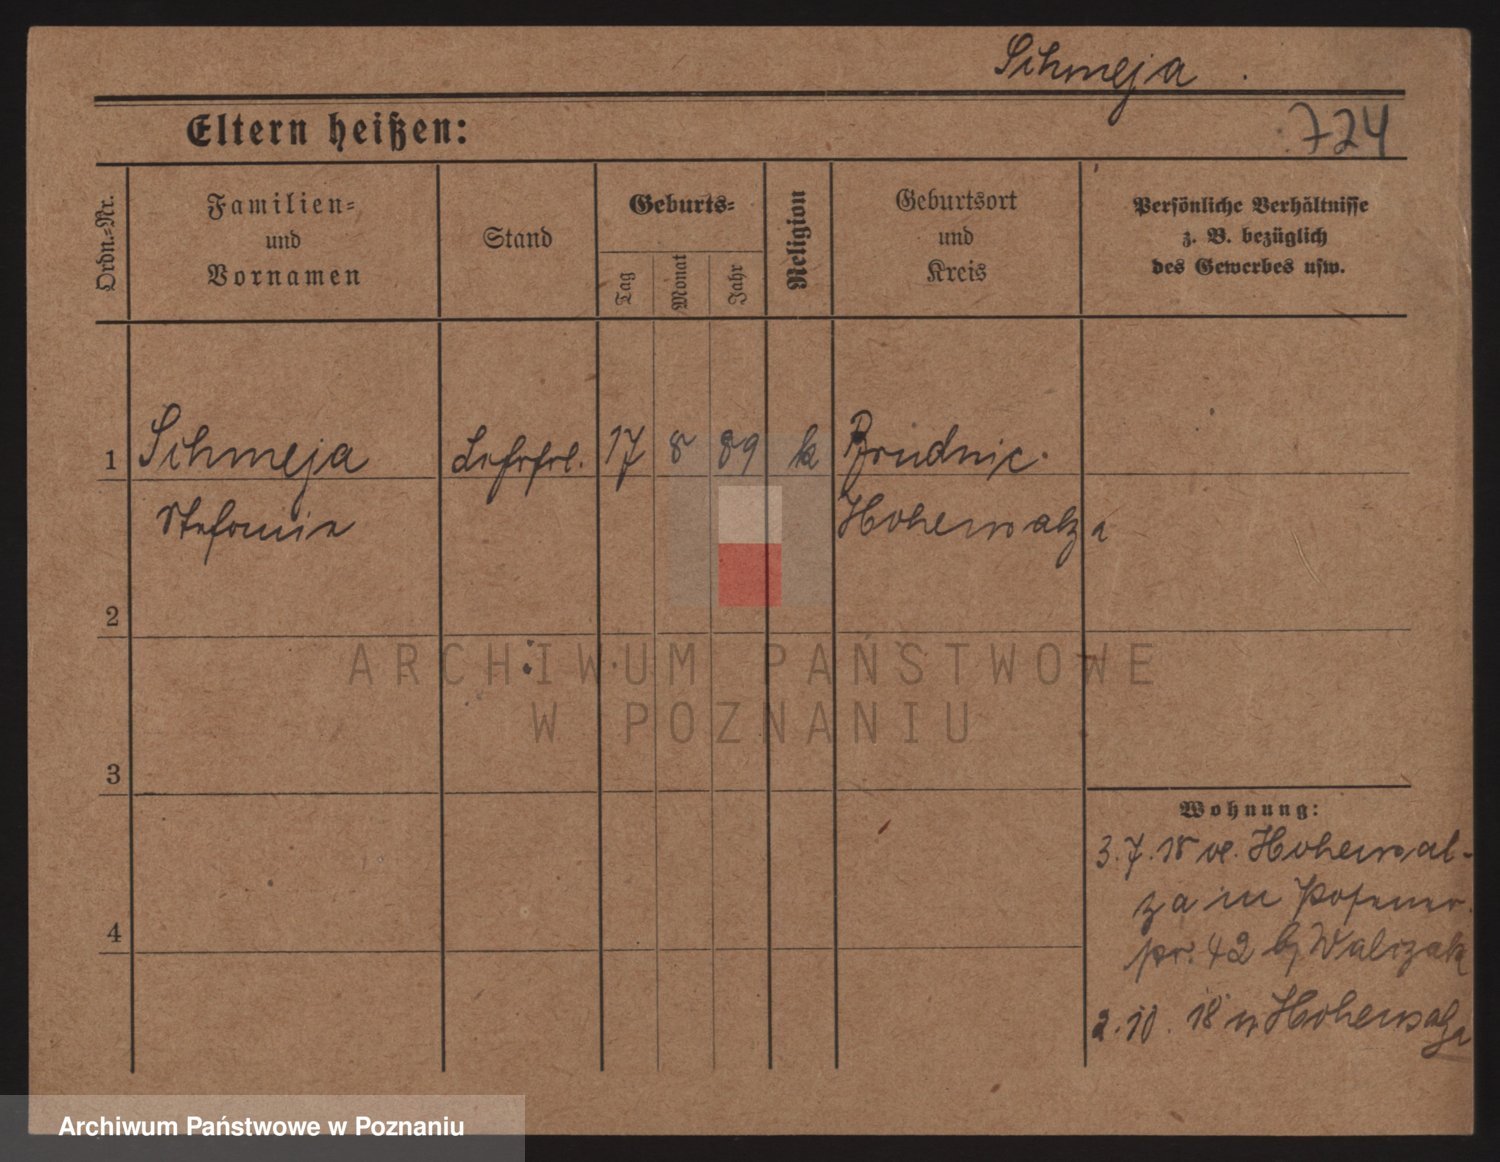 Schmeja
724
Eltern heißen:
Ordn.=Nr.
Familien=
und
Vornamen
Stand
Geburts=
Tag
Monat
Jahr
Religion
Geburtsort
und
Kreis
Persönliche Verhältnisse
z. B. bezüglich
des Gewerbes usw.
1 Schmeja 17 8 89 k
Stefanie Hohensalza
2
3
4
Wohnung:
3.7.18 Hohensal-
za in Posener
42 Walczak
2.10.18 n Hohensalza
ARCHIWUM PAŃSTWOWE
W POZNANIU
Archiwum Państwowe w Poznaniu